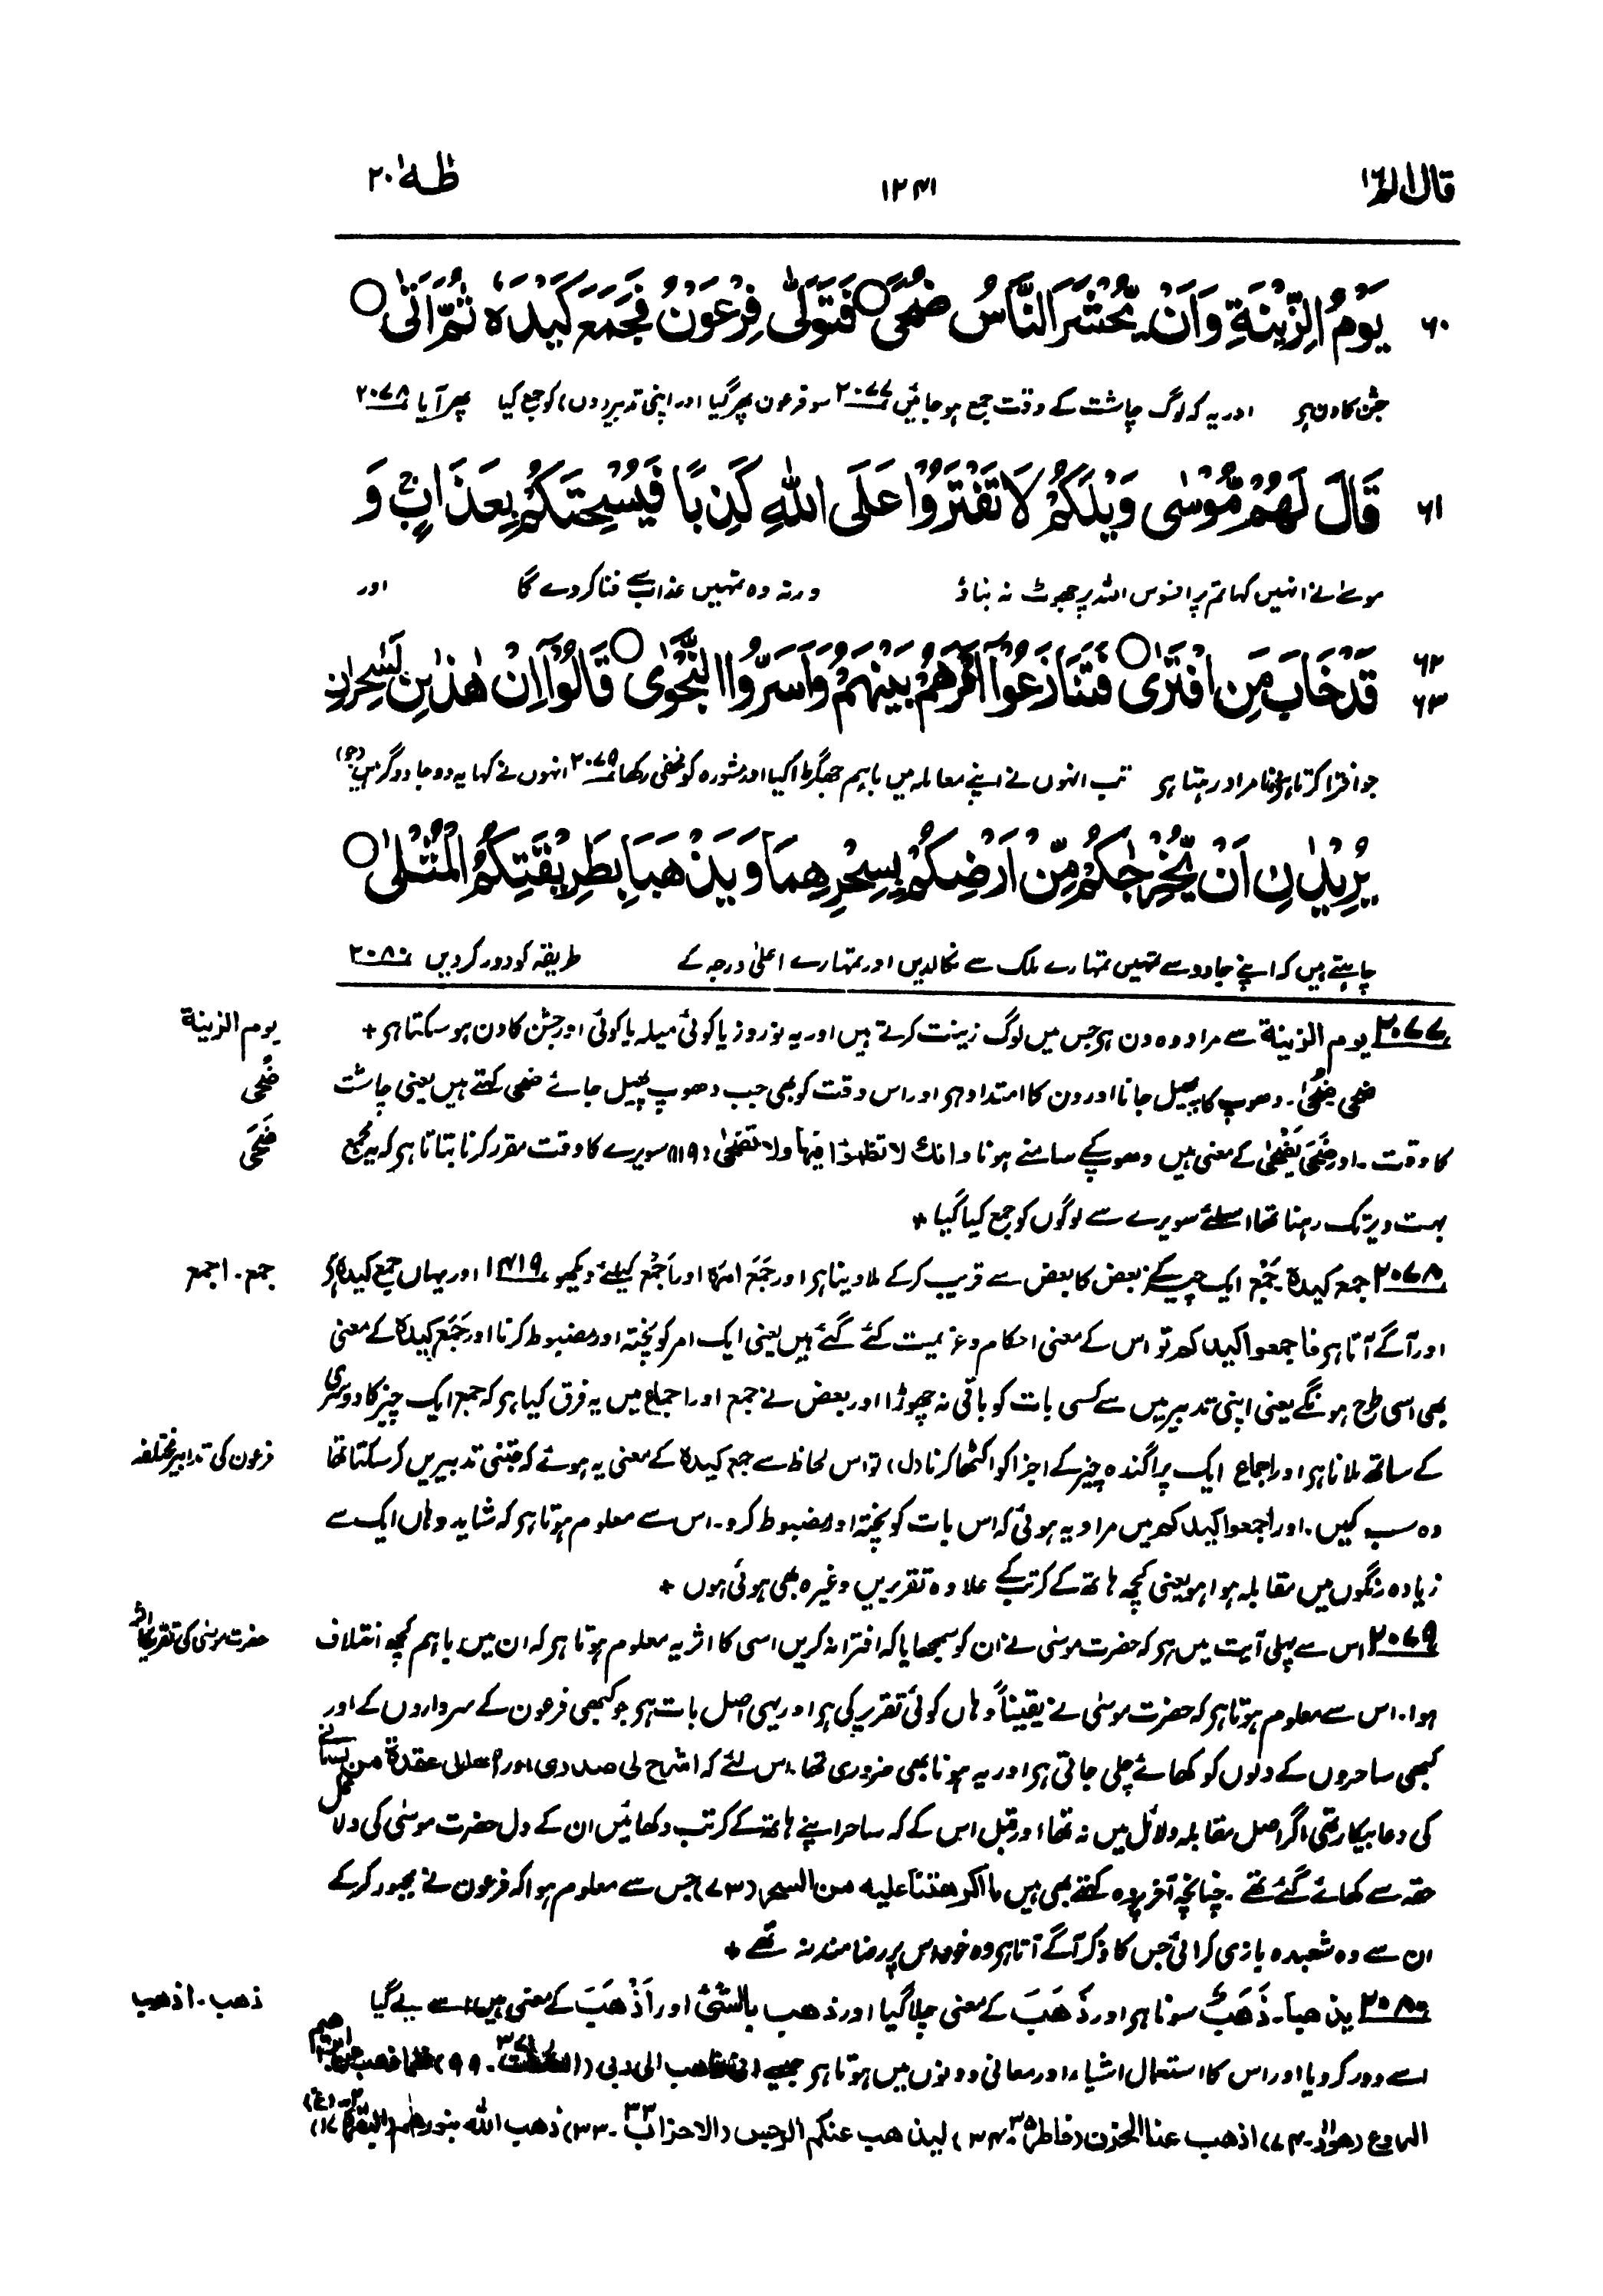 قال الم ۱۶
۱۲۴۱
طٰهٰ ۲۰
۶۰ يَوْمُ الزِّيْنَةِ وَاَنْ يُّحْشَرَ النَّاسُ ضُحًى ○ فَتَوَلّٰى فِرْعَوْنُ فَجَمَعَ كَيْدَهٗ ثُمَّ اَتٰى ○
جشن کا دن ہر اور یہ کہ لوگ چاشت کے وقت جمع ہو جائیں ۲۰۷۷ سو فرعون پھر گیا اور اپنی تدبیر(وں) کو جمع کیا پھر آیا ۲۰۷۸
۶۱ قَالَ لَهُمْ مُّوْسٰى وَيْلَكُمْ لَا تَفْتَرُوْا عَلَى اللّٰهِ كَذِبًا فَيُسْحِتَكُمْ بِعَذَابٍ ۚ وَ
موسےٰ نے انہیں کہا تم پر افسوس اللہ پر جھوٹ نہ بناؤ ورنہ وہ تمہیں عذاب سے فنا کر دے گا اور
۶۲ ۶۳ قَدْ خَابَ مَنِ افْتَرٰى ○ فَتَنَازَعُوْۤا اَمْرَهُمْ بَيْنَهُمْ وَاَسَرُّوا النَّجْوٰى ○ قَالُوْۤا اِنْ هٰذٰنِ لَسٰحِرٰنِ
جو افترا کرتا ہر نامراد رہتا ہر تب انہوں نے اپنے معاملہ میں باہم جھگڑا کیا اور مشورہ کو مخفی رکھا ۲۰۷۹ انہوں نے کہا یہ دو جادوگر ہیں (جو)
يُرِيْدٰنِ اَنْ يُّخْرِجٰكُمْ مِّنْ اَرْضِكُمْ بِسِحْرِهِمَا وَيَذْهَبَا بِطَرِيْقَتِكُمُ الْمُثْلٰى ○
چاہتے ہیں کہ اپنے جادو سے تمہیں تمہارے ملک سے نکالدیں اور تمہارے اعلیٰ درجہ کے طریقہ کو دور کردیں ۲۰۸۰
۲۰۷۷ یوم الزینة سے مراد وہ دن ہر جس میں لوگ زینت کرتے ہیں اور یہ نوروز یا کوئی میلہ یا کوئی اور جشن کا دن ہو سکتا ہر +
یوم الزینة
ضحی ضُحًی۔ دھوپ کا پھیل جانا اور دن کا امتداد ہر اور اس وقت کو بھی جب دھوپ پھیل جائے ضحی کہتے ہیں یعنی چاشت
ضُحًی
کا وقت۔ اور ضَحَی یَضْحٰی کے معنی ہیں دھوپ کے سامنے ہونا وانك لا تظمؤا فیها ولا تضحٰی (۱۱۹) سویرے کا وقت مقرر کرنا بتاتا ہر کہ یہ مجمع
ضَحَی
بہت دیر تک رہنا تھا اسلئے سویرے سے لوگوں کو جمع کیا گیا +
۲۰۷۸ جمع کیدہ۔ جَمْع ایک چیز کے بعض کا بعض سے قریب کرکے ملا دینا ہر اور جَمَعَ امرَہ اور اَجْمَعَ کیلئے دیکھو ۱۴۱۹ اور یہاں جمع کیدہ ہر
جمع۔ اجمع
اور آگے آتا ہر فاجمعوا کیدکم تو اس کے معنی احکام و عزیمت کئے گئے ہیں یعنی ایک امر کو پختہ اور مضبوط کرنا اور جَمَعَ کیدہ کے معنی
بھی اسی طرح ہونگے یعنی اپنی تدبیر میں سے کسی بات کو باقی نہ چھوڑا اور بعض نے جمع اور اجماع میں یہ فرق کیا ہر کہ جمع ایک چیز کا دوسری
کے ساتھ ملانا ہر اور اجماع ایک پراگندہ چیز کے اجزا کو اکٹھا کرنا (ل) تو اس لحاظ سے جمع کیدہ کے معنی یہ ہوئے کہ جتنی تدبیریں کر سکتا تھا
فرعون کی تدابیر مختلفہ
وہ سب کیں۔ اور اجمعوا کیدکم میں مراد یہ ہوئی کہ اس بات کو پختہ اور مضبوط کرو۔ اس سے معلوم ہوتا ہر کہ شاید وہاں ایک سے
زیادہ رنگوں میں مقابلہ ہوا ہو یعنی کچھ ہاتھ کے کرتب کے علاوہ تقریریں وغیرہ بھی ہوئی ہوں +
۲۰۷۹ اس سے پہلی آیت میں ہر کہ حضرت موسٰی نے ان کو سمجھایا کہ افترا نہ کریں اسی کا اثر یہ معلوم ہوتا ہر کہ ان میں باہم کچھ اختلاف
حضرت موسٰی کی تقریر کا اثر
ہوا۔ اس سے معلوم ہوتا ہر کہ حضرت موسٰی نے یقیناً وہاں کوئی تقریر کی ہر اور یہی اصل بات ہر جو کبھی فرعون کے سرداروں کے اور
کبھی ساحروں کے دلوں کو کھائے چلی جاتی ہر اور یہ ہونا بھی ضروری تھا۔ اس لئے کہ اشرح لی صدری اور احلل عقدة من لسانی
کی دعا بیکار تھی اگر اصل مقابلہ دلائل میں نہ تھا اور قبل اس کے کہ ساحر اپنے ہاتھ کے کرتب دکھائیں ان کے دل حضرت موسٰی کی دلائل
حقہ سے کھائے گئے تھے۔ چنانچہ آخر پر وہ کہتے بھی ہیں ما اکرهتنا علیه من السحر (۷۳) جس سے معلوم ہوا کہ فرعون نے مجبور کرکے
ان سے وہ شعبدہ بازی کرائی جس کا ذکر آگے آتا ہر وہ خود اس پر رضامند نہ تھے +
۲۰۸۰ یذهبا۔ ذَهَبٌ سونا ہر اور ذَهَبَ کے معنی چلا گیا اور ذهب بالشیٔ اور اَذْهَبَ کے معنی ہیں اسے لے گیا
ذهب۔ اذهب
اسے دور کر دیا اور اس کا استعمال اشیاء اور معانی دونوں میں ہوتا ہر جیسے انی ذاهب الی ربی (الصّٰفّٰت ۳۷۔۹۹) فلما ذهب عن ابراهیم
الروع (هود۔۷۴) اذهب عنا الحزن (فاطر ۳۵۔۳۴) لیذهب عنکم الرجس (الاحزاب ۳۳۔۳۳) ذهب اللّٰه بنورهم (البقرة ۲۔۱۷) (غ)